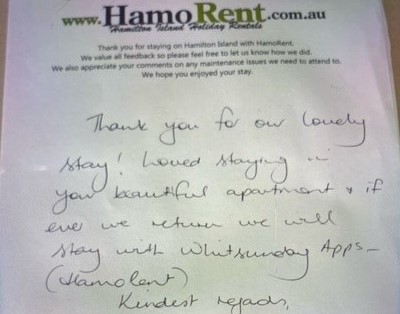 www.HamoRent.com.au
Hamilton Island Holiday Rentals
Thank you for staying on Hamilton Island with HamoRent.
We value all feedback so please feel free to let us know how we did.
We also appreciate your comments on any maintenance issues we need to attend to.
We hope you enjoyed your stay.
Thank you for our lovely
stay! Loved staying in
your beautiful apartment & if
ever we return we will
stay with Whitsunday Apps -
(Hamorent)
Kindest regards,